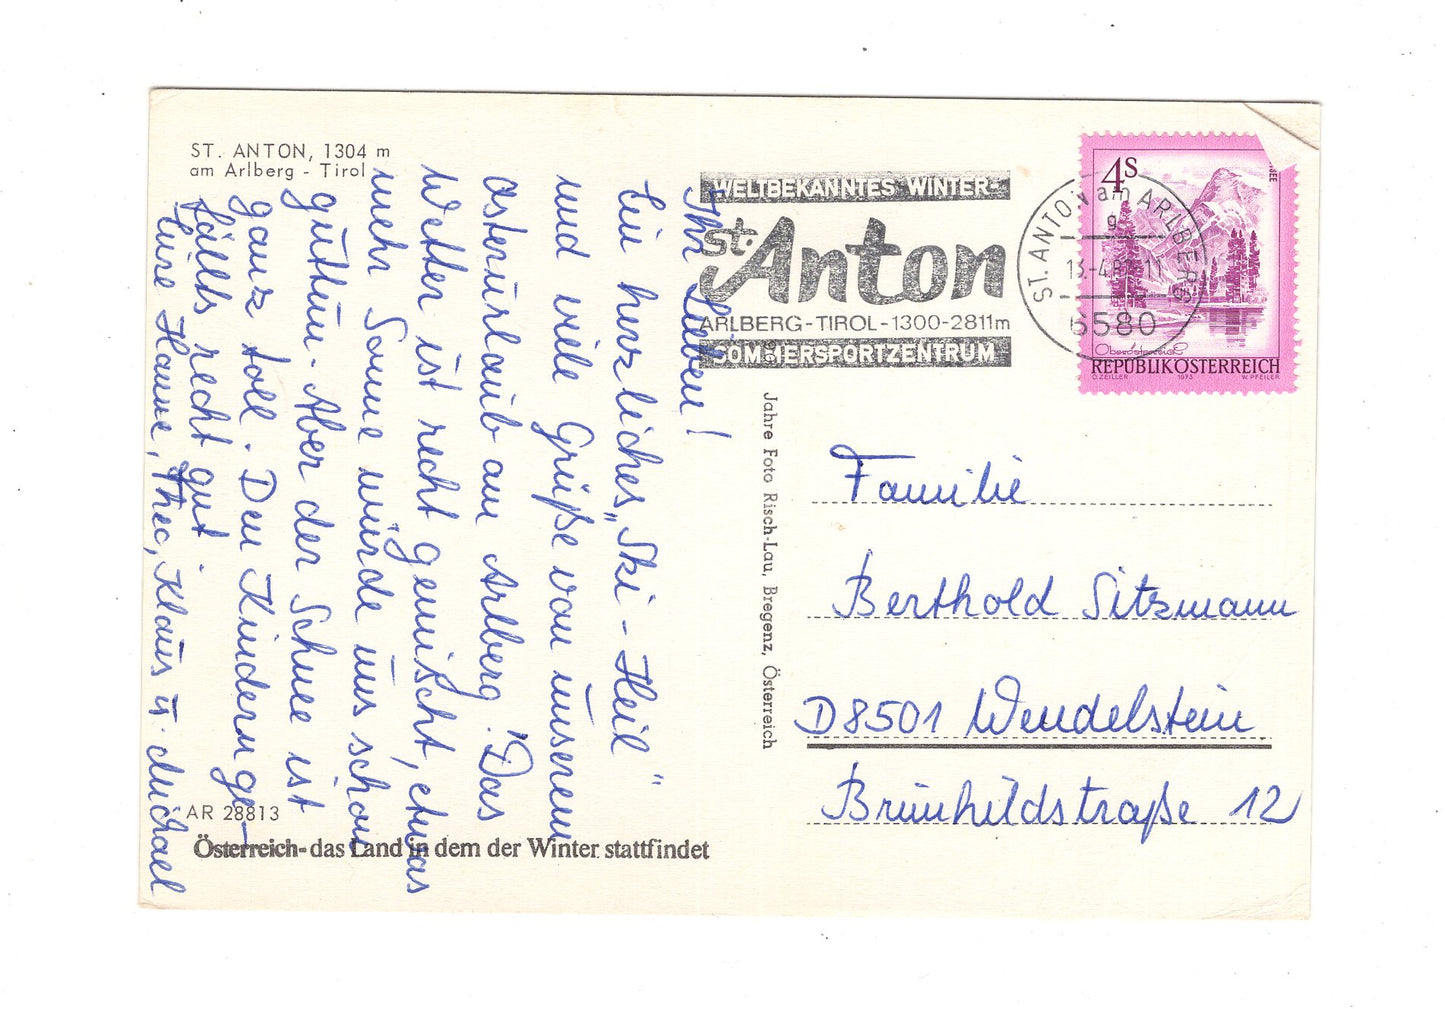 ST. ANTON, 1304 m
am Arlberg - Tirol
Ihr Lieben!
Ein herzliches „Ski-Heil"
und viele Grüße von unserem
Osterurlaub am Arlberg. Das
Wetter ist recht gemischt, etwas
mehr Sonne würde uns schon
guttun. Aber der Schnee ist
ganz toll. Den Kindern ge-
fällts recht gut.
Eure Hanne, Theo, Klaus u. Michael
AR 28813
Österreich-das Land in dem der Winter stattfindet
Jahre Foto Risch-Lau, Bregenz, Österreich
WELTBEKANNTES WINTER-
St. Anton
ARLBERG-TIROL-1300-2811m
SOMMERSPORTZENTRUM
ST. ANTON am ARLBERG
g
6580
4S
SEE
Oberösterreich
REPUBLIK ÖSTERREICH
O. ZEILLER 1973 W. PFEILER
Familie
Berthold Sitzmann
D8501 Wendelstein
Brünhildstraße 12